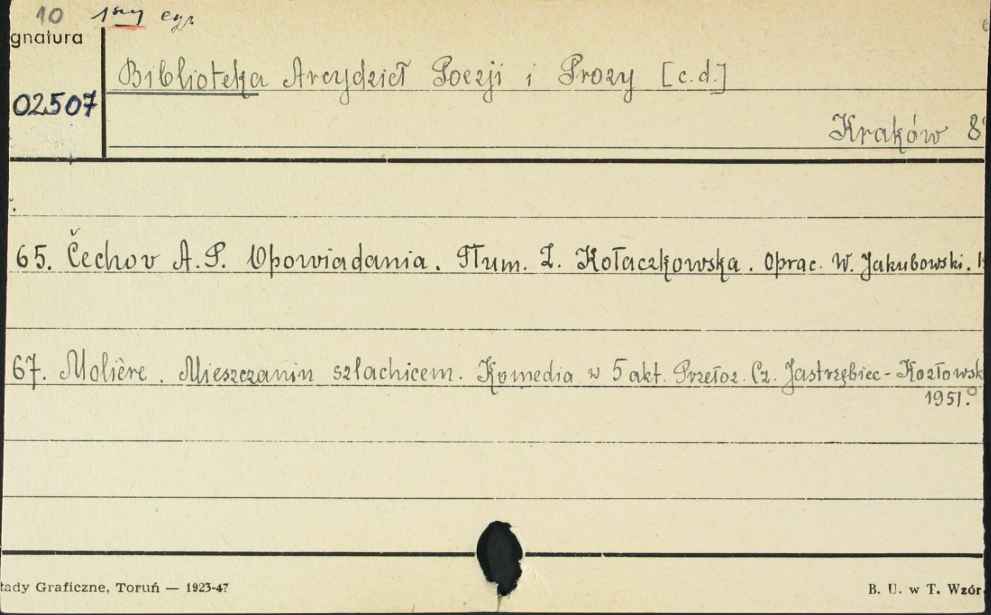 10 1szy egz.
gnatura
02507
Biblioteka Arcydzieł Poezji i Prozy [c.d.]
Kraków 8°
65. Čechov A.P. Opowiadania. Tłum. Z. Kołaczkowska. Oprac. W. Jakubowski.
67. Molière. Mieszczanin szlachicem. Komedia w 5 akt. Przełoż. Cz. Jastrzębiec-Kozłowsk
1951.
tady Graficzne, Toruń — 1923-47
B. U. w T. Wzór